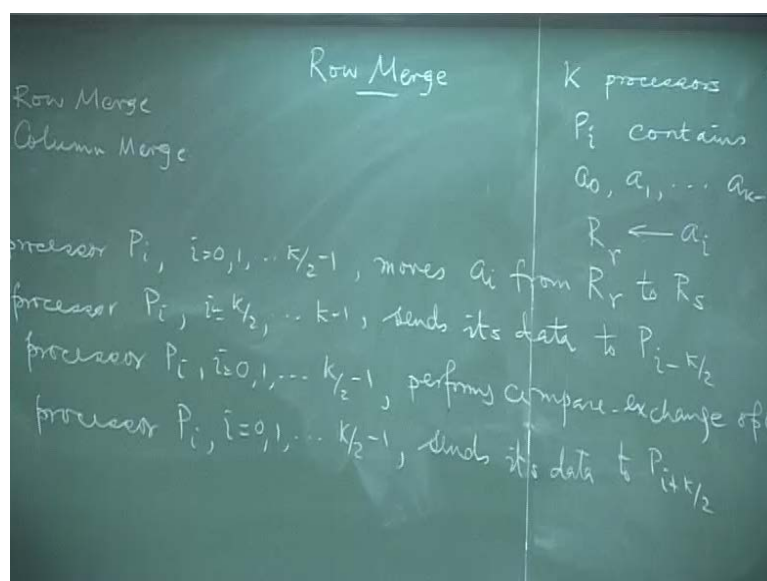 Row Merge
Row Merge
Column Merge
K processors
Pi contains
a0, a1, ... ak-
Rr ← ai
processor Pi, i=0,1, .. k/2-1, moves ai from Rr to Rs
processor Pi, i= k/2, .. k-1, sends its data to Pi-k/2
processor Pi, i=0,1, ... k/2-1, performs compare-exchange op
processor Pi, i=0,1, ... k/2-1, sends its data to Pi+k/2